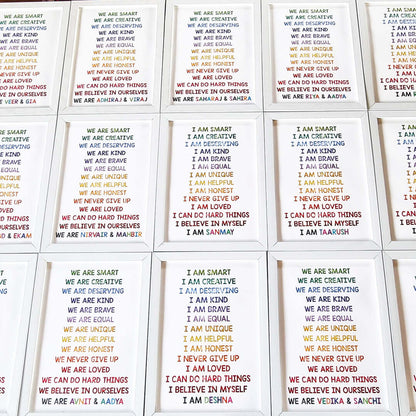 WE ARE SMART
ARE CREATIVE
ARE DESERVING
WE ARE KIND
E ARE BRAVE
ARE EQUAL
ARE UNIQUE
ARE HELPFUL
ARE HONEST
NEVER GIVE UP
ARE LOVED
DO HARD THINGS
IN OURSELVES
VEER & GIA
WE ARE SMART
WE ARE CREATIVE
WE ARE DESERVING
WE ARE KIND
WE ARE BRAVE
WE ARE EQUAL
WE ARE UNIQUE
WE ARE HELPFUL
WE ARE HONEST
WE NEVER GIVE UP
WE ARE LOVED
WE CAN DO HARD THINGS
WE BELIEVE IN OURSELVES
WE ARE ADHIRAJ & VIRAJ
WE ARE SMART
WE ARE CREATIVE
WE ARE DESERVING
WE ARE KIND
WE ARE BRAVE
WE ARE EQUAL
WE ARE UNIQUE
WE ARE HELPFUL
WE ARE HONEST
WE NEVER GIVE UP
WE ARE LOVED
WE CAN DO HARD THINGS
WE BELIEVE IN OURSELVES
WE ARE SAHARAJ & SAHIRA
WE ARE SMART
WE ARE CREATIVE
WE ARE DESERVING
WE ARE KIND
WE ARE BRAVE
WE ARE EQUAL
WE ARE UNIQUE
WE ARE HELPFUL
WE ARE HONEST
WE NEVER GIVE UP
WE ARE LOVED
WE CAN DO HARD THINGS
WE BELIEVE IN OURSELVES
WE ARE RIYA & AADYA
I AM SMART
I AM CREATIVE
I AM DESERVING
I AM KIND
I AM BRAVE
I AM EQUAL
I AM UNIQUE
I AM HELPFUL
I AM HONEST
I NEVER GIVE
I AM LOVED
I CAN DO HARD
I BELIEVE IN
I AM
& EKAM
WE ARE SMART
WE ARE CREATIVE
WE ARE DESERVING
WE ARE KIND
WE ARE BRAVE
WE ARE EQUAL
WE ARE UNIQUE
WE ARE HELPFUL
WE ARE HONEST
WE NEVER GIVE UP
WE ARE LOVED
WE CAN DO HARD THINGS
WE BELIEVE IN OURSELVES
WE ARE NIRVAIR & MAHBIR
I AM SMART
I AM CREATIVE
I AM DESERVING
I AM KIND
I AM BRAVE
I AM EQUAL
I AM UNIQUE
I AM HELPFUL
I AM HONEST
I NEVER GIVE UP
I AM LOVED
I CAN DO HARD THINGS
I BELIEVE IN MYSELF
I AM SANMAY
I AM SMART
I AM CREATIVE
I AM DESERVING
I AM KIND
I AM BRAVE
I AM EQUAL
I AM UNIQUE
I AM HELPFUL
I AM HONEST
I NEVER GIVE UP
I AM LOVED
I CAN DO HARD THINGS
I BELIEVE IN MYSELF
I AM TAARUSH
WE ARE SMART
WE ARE CREATIVE
WE ARE DESERVING
WE ARE KIND
WE ARE BRAVE
WE ARE EQUAL
WE ARE UNIQUE
WE ARE HELPFUL
WE ARE HONEST
WE NEVER GIVE UP
WE ARE LOVED
WE CAN DO HARD THINGS
WE BELIEVE IN OURSELVES
WE ARE AVNIT & AADYA
I AM SMART
I AM CREATIVE
I AM DESERVING
I AM KIND
I AM BRAVE
I AM EQUAL
I AM UNIQUE
I AM HELPFUL
I AM HONEST
I NEVER GIVE UP
I AM LOVED
I CAN DO HARD THINGS
I BELIEVE IN MYSELF
I AM DESHNA
WE ARE SMART
WE ARE CREATIVE
WE ARE DESERVING
WE ARE KIND
WE ARE BRAVE
WE ARE EQUAL
WE ARE UNIQUE
WE ARE HELPFUL
WE ARE HONEST
WE NEVER GIVE UP
WE ARE LOVED
WE CAN DO HARD THINGS
WE BELIEVE IN OURSELVES
WE ARE VEDIKA & SANCHI